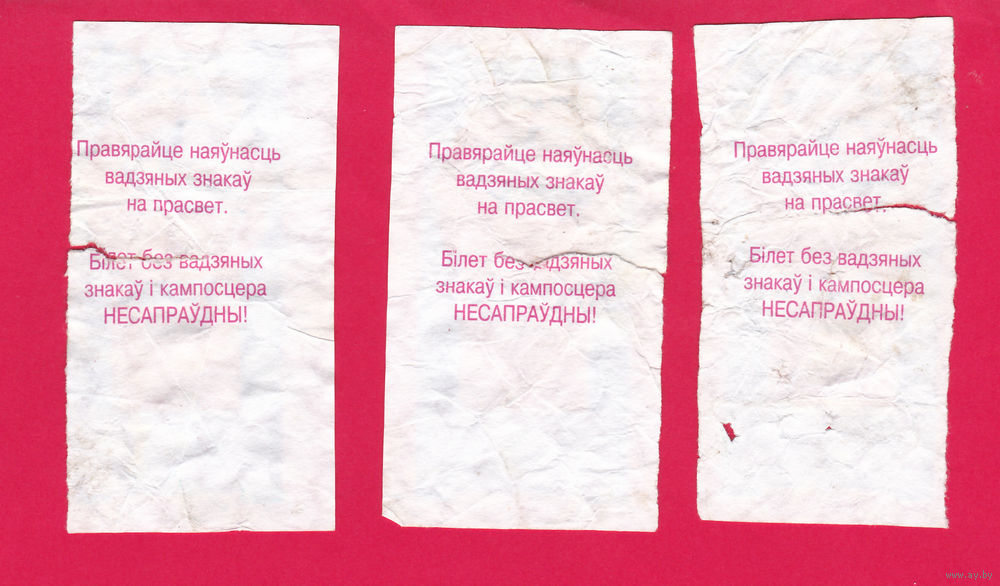 Правярайце наяўнасць
вадзяных знакаў
на прасвет.
Білет без вадзяных
знакаў і кампосцера
НЕСАПРАЎДНЫ!
Правярайце наяўнасць
вадзяных знакаў
на прасвет.
Білет без вадзяных
знакаў і кампосцера
НЕСАПРАЎДНЫ!
Правярайце наяўнасць
вадзяных знакаў
на прасвет.
Білет без вадзяных
знакаў і кампосцера
НЕСАПРАЎДНЫ!
www.ay.by